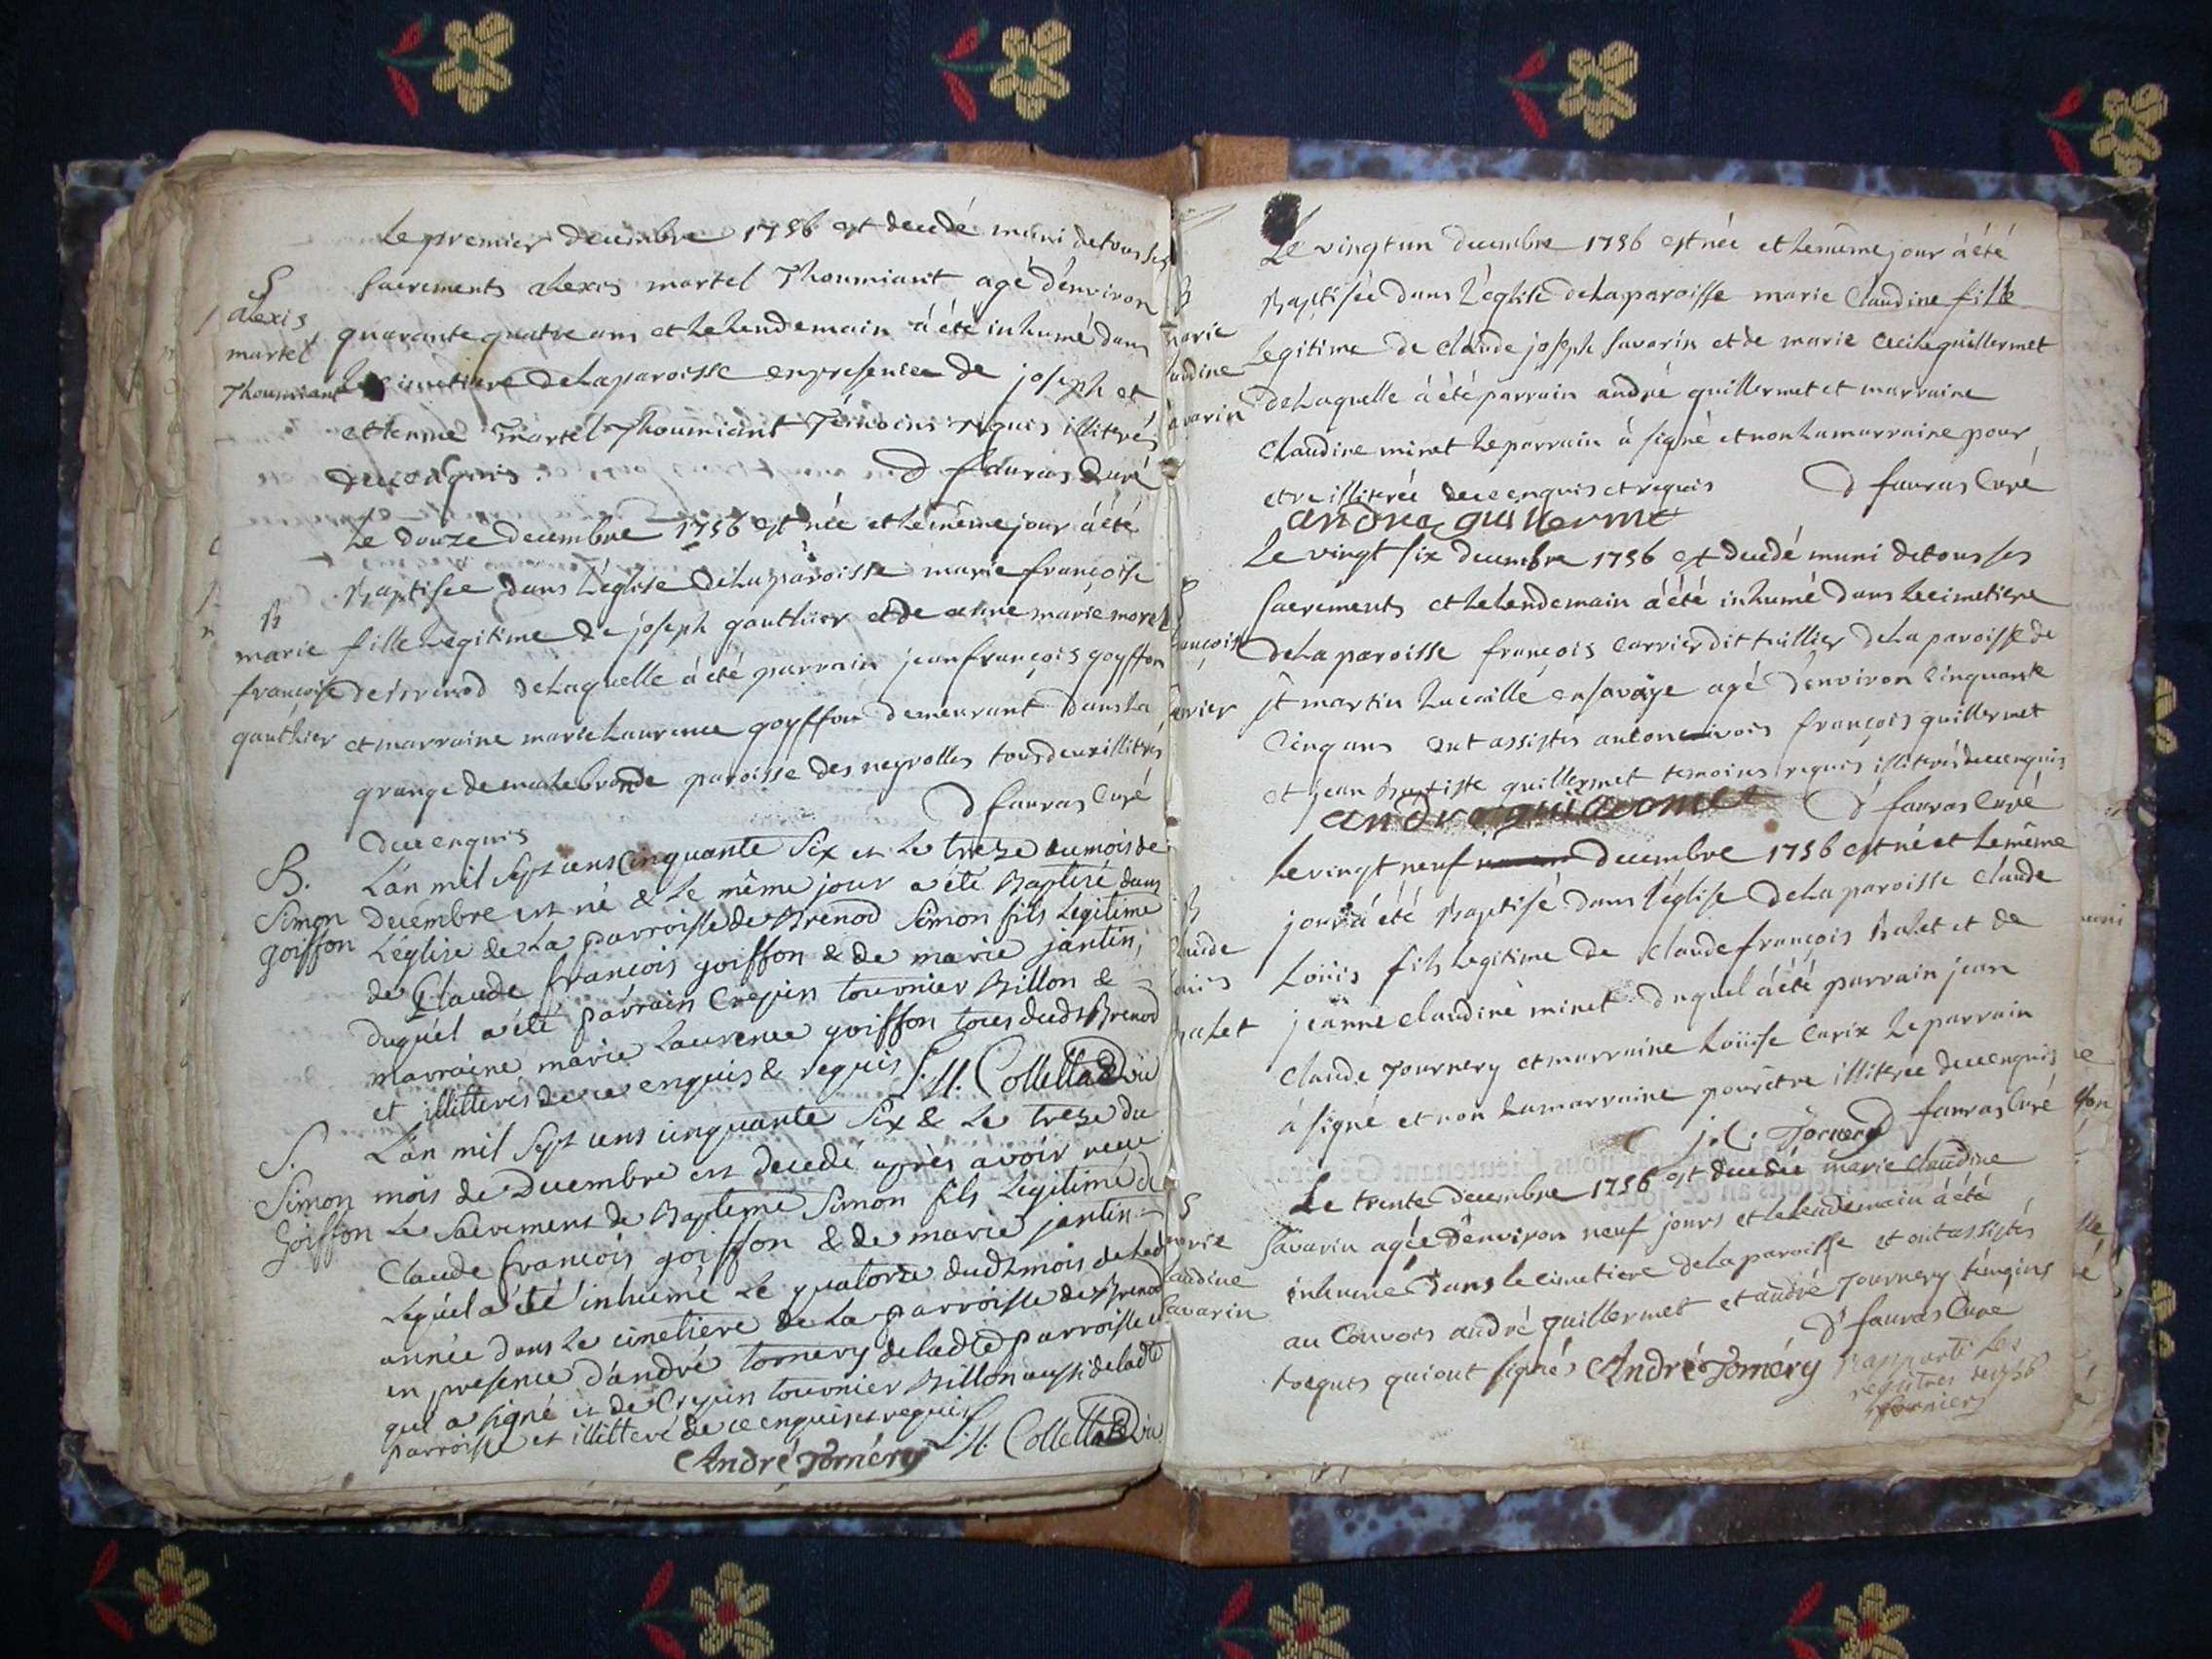 Le premier decembre 1756 est decedé muni de tous ses
S
alexis
martel
Thoumiant
sacrements alexis martel Thoumiant agé d'environ
quarante quatre ans et le lendemain à été inhumé dans
le cimetiere de la paroisse en presence de joseph et
etienne martel Thoumiant Témoins requis illiterés
de ce enquis. D fauras Curé
Le douze decembre 1756 est née et le même jour à été
Baptisée dans l'eglise de la paroisse marie françoise
B
marie
françoise
gauthier
fille legitime de joseph gauthier et de anne marie morel
de brenod de laquelle à été parrain jean françois goyffon
et marraine marie Laurence goyffon demeurant dans la
grange de malebronde paroisse des neyrolles tous deux illitrés
de ce enquis D fauras Curé
B.
Simon
goiffon
L'an mil sept cens Cinquante Six et le treze du mois de
Decembre est né & le même jour a été Baptisé dans
L'église de la parroisse de Brenod Simon fils Legitime
de Claude françois goiffon & de marie jantin,
duquel a été parrain Crepin tournier Billon &
marraine marie Laurence goiffon tous dudt Brenod
et illitterés de ce enquis & requis J. H. Colletta Vic
S.
Simon
Goiffon
L'an mil sept cens cinquante Six & le treze du
mois de Decembre est decedé après avoir reçu
le Sacrement de Bapteme Simon fils Legitime de
Claude françois goiffon & de marie jantin
Lequel a été inhumé le quatorze dudt mois de lad
année dans le cimetiere de la parroisse de Brenod
en presence d'andré tornery de ladte parroisse
qui a signé et de Crepin tournier Billon aussi de ladte
parroisse et illitteré de ce enquis et requis
André Tornéry J. H. Colletta Vic
Le vingt un decembre 1756 est née et le même jour à été
B
marie
Claudine
Savarin
Baptisée dans l'église de la paroisse marie Claudine fille
Legitime de claude joseph Savarin et de marie Cecile guillermet
de laquelle à été parrain andré guillermet et marraine
Claudine minet le parrain à signé et non la marraine pour
etre illiterée de ce enquis et requis D fauras Curé
andrea guillerme
Le vingt six decembre 1756 est decedé muni de tous ses
S
françois
Carrier
sacrements et le lendemain à été inhumé dans le cimetiere
de la paroisse françois Carrier dit tuillier de la paroisse de
st martin en savoÿe agé d'environ Cinquante
Cinq ans ont assistés au convois françois guillermet
et jean Baptiste guillermet temoins requis illiterés de ce enquis
D fauras Curé
Le vingt neuf decembre 1756 est né et le même
B
Claude
Loüis
Balet
jour à été Baptisé dans l'église de la paroisse Claude
Loüis fils legitime de Claude françois Balet et de
jeanne claudine minet duquel à été parrain jean
Claude Tournery et marraine Loüise Carix le parrain
à signé et non la marraine pour être illiterée de ce enquis
j. C. Tornery D fauras Curé
Le trente decembre 1756 est decedée marie claudine
S
marie
Claudine
Savarin
Savarin agée d'environ neuf jours et le lendemain à été
inhumé dans le cimetiere de la paroisse et ont assistés
au Convois andré guillermet et andré Tournery témoins
requis qui ont signés D fauras Curé
André Tornéry
Rapporté les